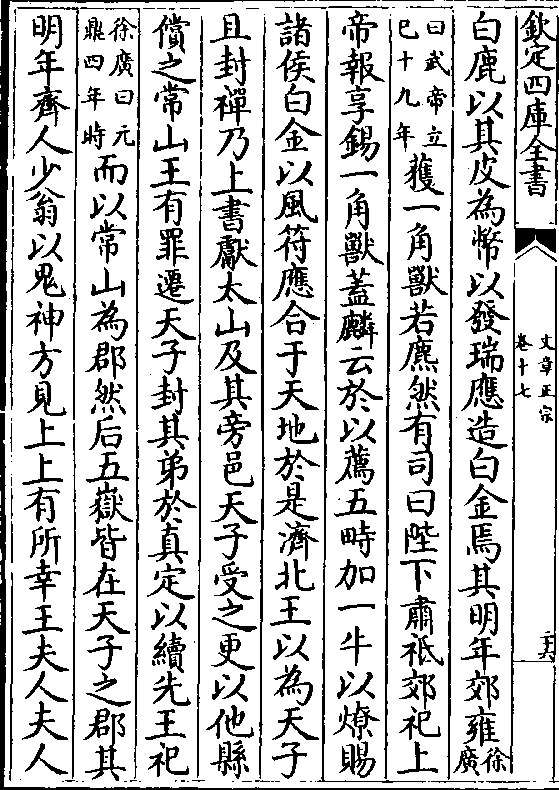 欽定四庫全書
文章正宗
卷十七
白鹿以其皮為幣以發瑞應造白金焉其明年郊雍徐廣
曰武帝立已十九年獲一角獸若麃然有司曰陛下肅祇郊祀上
帝報享錫一角獸蓋麟云於以薦五畤加一牛以燎賜
諸侯白金以風符應合于天地於是濟北王以為天子
且封禪乃上書獻太山及其旁邑天子受之更以他縣
償之常山王有罪遷天子封其弟於真定以續先王祀
徐廣曰元鼎四年時而以常山為郡然后五嶽皆在天子之郡其
明年齊人少翁以鬼神方見上上有所幸王夫人夫人